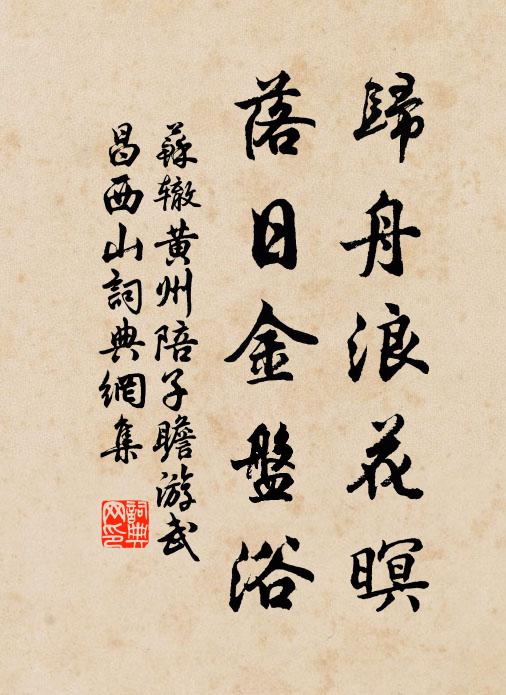 歸舟浪花暝
落日金盤浴
蘇辙黄州陪子瞻游武
昌西山詞典網集
詞典网印